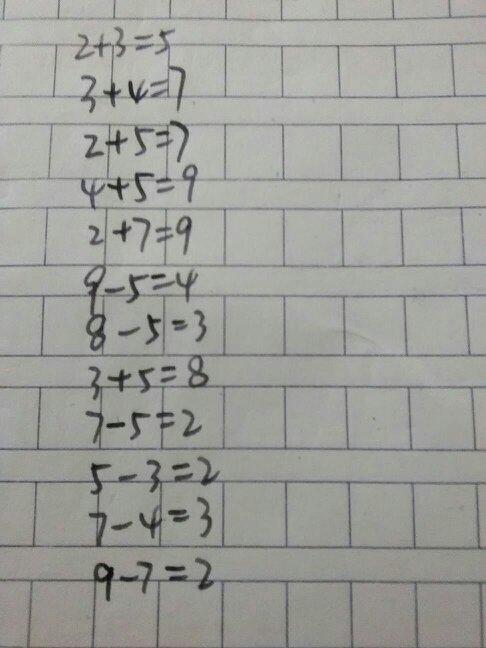 2+3=5
3+4=7
2+5=7
4+5=9
2+7=9
9-5=4
8-5=3
3+5=8
7-5=2
5-3=2
7-4=3
9-7=2